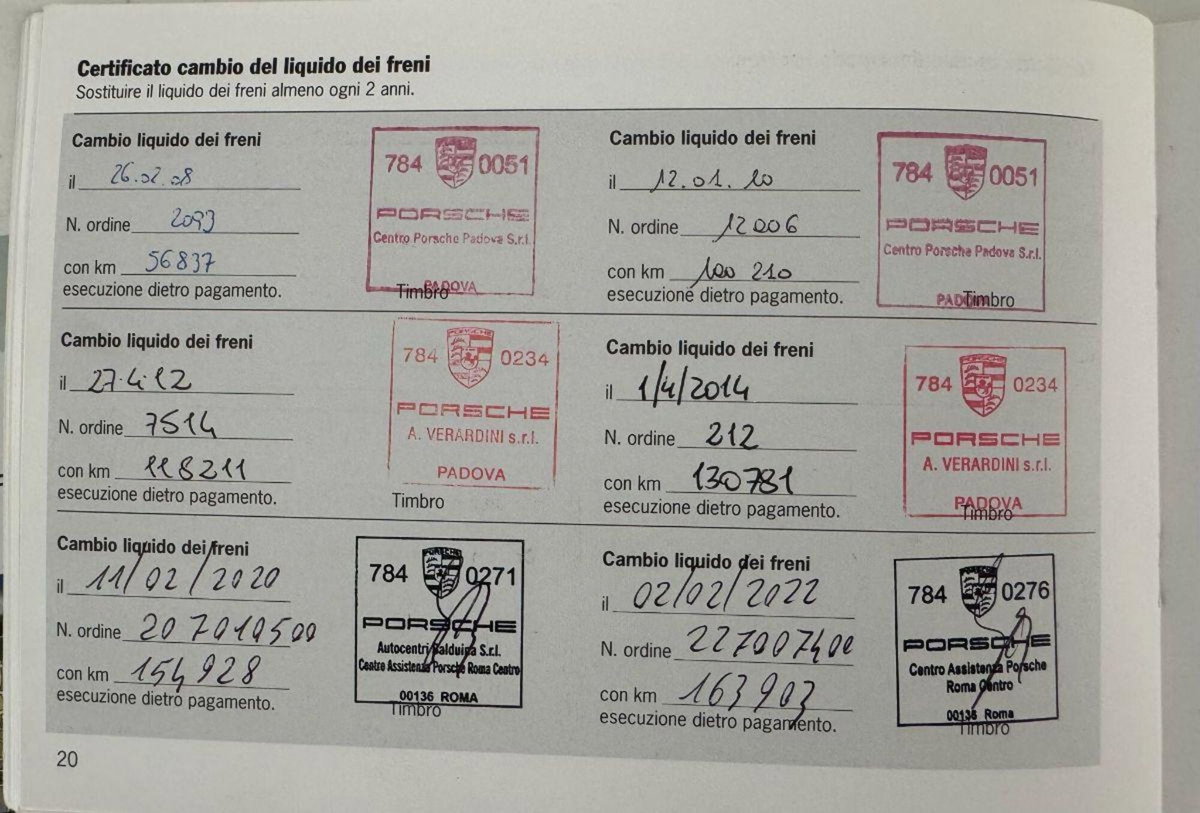 Certificato cambio del liquido dei freni
Sostituire il liquido dei freni almeno ogni 2 anni.
Cambio liquido dei freni
il 26.02.08
N. ordine 2093
con km 56837
esecuzione dietro pagamento.
784 0051
PORSCHE
Centro Porsche Padova S.r.l.
PADOVA
Timbro
Cambio liquido dei freni
il 12.01.10
N. ordine 12006
con km 100 210
esecuzione dietro pagamento.
784 0051
PORSCHE
Centro Porsche Padova S.r.l.
PADOVA
Timbro
Cambio liquido dei freni
il 27.4.12
N. ordine 7514
con km 118211
esecuzione dietro pagamento.
PORSCHE
784 0234
PORSCHE
A. VERARDINI s.r.l.
PADOVA
Timbro
Cambio liquido dei freni
il 1/4/2014
N. ordine 212
con km 130781
esecuzione dietro pagamento.
PORSCHE
784 0234
PORSCHE
A. VERARDINI s.r.l.
PADOVA
Timbro
Cambio liquido dei freni
il 11/02/2020
N. ordine 207010500
con km 154928
esecuzione dietro pagamento.
784 0271
PORSCHE
Autocentri Balduina S.r.l.
Centre Assistenza Porsche Roma Centro
00136 ROMA
Timbro
Cambio liquido dei freni
il 02/02/2022
N. ordine 227007400
con km 163903
esecuzione dietro pagamento.
784 0276
PORSCHE
Centro Assistenza Porsche
Roma Centro
00136 Roma
Timbro
20